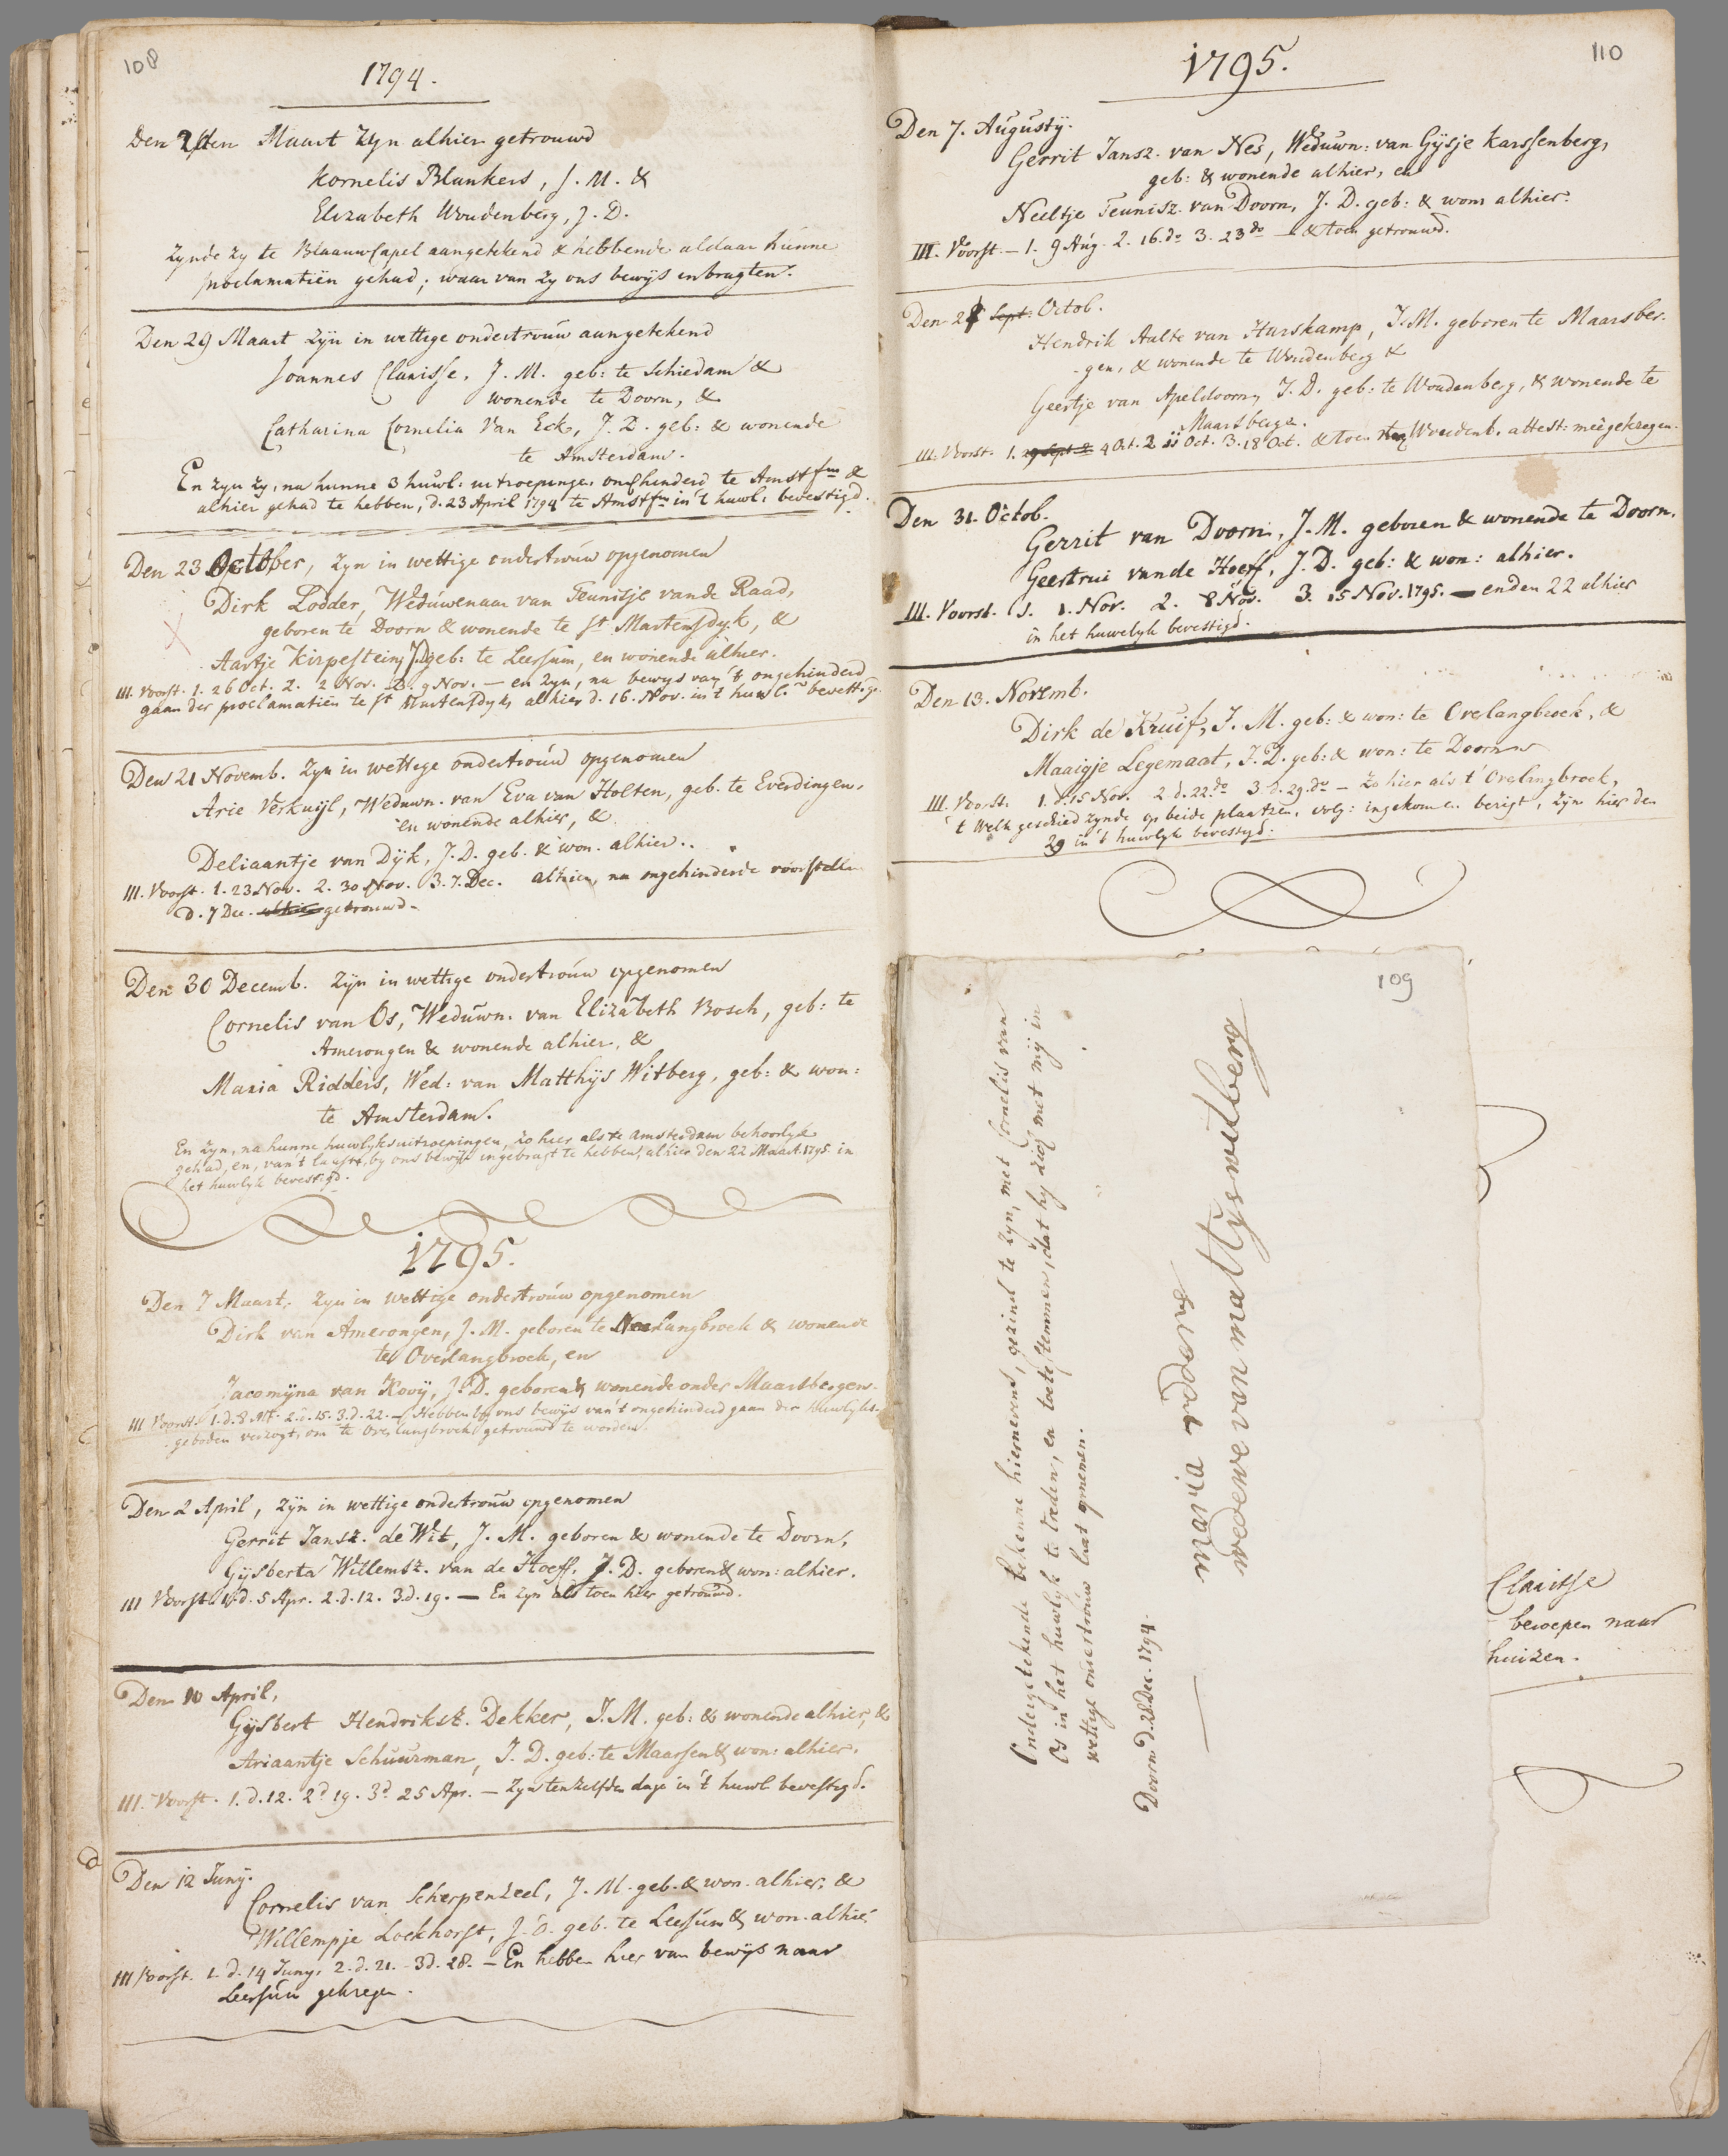 108
1794.
Maart Zyn alhier getrouwd
Kornelis Blankers, J. M. &
Elizabeth Woudenberg, J. D.
Zynde zy te Blaauwcapel aangetekend & hebbende aldaar hunne
proclamatiën gehad; waar van zy ons bewys inbragten.
Den 29 Maart Zyn in wettige ondertrouw aangetekend
Joannes Clarisse, J. M. geb: te Schiedam &
wonende te Doorn, &
Catharina Cornelia Van Eck, J. D. geb: & wonende
te Amsterdam.
En zyn zy, na hunne 3 huwl: uitroepinge ongehinderd te Amstfm &
alhier gehad te hebben, d. 23 April 1794 te Amstfm in 't huwl: bevestigd.
Den 23 October, Zyn in wettige ondertrouw opgenomen
Dirk Lodder, Weduwenaar van Teunisje vande Raad,
geboren te Doorn & wonende te St Martensdyk, &
Aartje Kirpestein, J.D. geb: te Leersum, en wonende alhier.
III. Voorst. 1. 26 Oct. 2. 2 Nov. 3. 9 Nov. — en Zyn, na bewys van 't ongehinderd
gaan der proclamatiën te St Martensdyk, alhier d. 16. Nov. in 't huwl. bevestigd.
Den 21 Novemb. Zyn in wettige ondertrouw opgenomen
Arie Verkuijl, Weduwn. van Eva van Holten, geb. te Everdingen,
en wonende alhier, &
Deliaantje van Dijk, J. D. geb. & won. alhier.
III. Voorst. 1. 23 Nov. 2. 30 Nov. 3. 7. Dec. alhier, na ongehinderde voorstelle
d. 7 Dec. alhier getrouwd.
Den 30 Decemb. Zyn in wettige ondertrouw opgenomen
Cornelis van Os, Weduwn. van Elizabeth Bosch, geb: te
Amerongen & wonende alhier, &
Maria Ridders, Wed: van Matthijs Witberg, geb: & won:
te Amsterdam.
En Zyn, na hunne huwlyksuitroepingen, zo hier als te Amsterdam behoorlyk
gehad, en, van 't laatste, by ons bewys ingebragt te hebben, alhier den 22 Maart 1795 in
het huwlyk bevestigd.
1795.
Den 7 Maart, Zyn in wettige ondertrouw opgenomen
Dirk van Amerongen, J. M. geboren te Neerlangbroek & wonende
te Overlangbroek, en
Jacomijna van Kooij, J. D. geboren & wonende onder Maarsbergen.
III Voorst. 1. d. 8 Mt. 2. d. 15. 3. d. 22. — Hebben by ons bewys van 't ongehinderd gaan der huwlyks-
geboden verzogt, om te Overlangbroek getrouwd te worden.
Den 2 April, Zyn in wettige ondertrouw opgenomen
Gerrit Jansz. de Wit, J. M. geboren & wonende te Doorn,
Gijsberta Willemsz. van de Hoeff, J. D. geboren & won: alhier.
III Voorst. 1. d. 5 Apr. 2. d. 12. 3. d. 19. — En zyn als toen hier getrouwd.
Den 10 April,
Gijsbert Hendriksz. Dekker, J. M. geb: & wonende alhier, &
Ariaantje Schuurman, J. D. geb: te Maarsen & won: alhier.
III. Voorst. 1. d. 12. 2d 19. 3d 25 Apr. — Zyn tenzelfden dage in 't huwl bevestigd.
Den 12 Juny.
Cornelis van Scherpenzeel, J. M. geb. & won. alhier, &
Willempje Lockhorst, J. D. geb. te Leersum & won. alhier.
III Voorst. 1. d. 14 Juny, 2. d. 21. 3d. 28. — En hebben hier van bewys naar
Leersum gekregen.
110
1795.
Den 7. Augusty.
Gerrit Jansz. van Nes, Weduwn: van Gijsje Karssenberg,
geb: & wonende alhier, en
Neeltje Teunisz. van Doorn, J. D. geb: & won: alhier.
III. Voorst. — 1. 9 Aug. 2. 16. do 3. 23 do — & toen getrouwd.
Den 2 Sept: Octob.
Hendrik Aalte van Hurskamp, J. M. geboren te Maarsber-
gen, & wonende te Woudenberg &
Geertje van Apeldoorn, J. D. geb: te Woudenberg, & wonende te
Maarsbergen.
III. Voorst. 1. 4 Oct. 2. 11 Oct. 3. 18 Oct. & toen naar Woudenb. attest: meegekregen.
Den 31. Octob.
Gerrit van Doorn, J. M. geboren & wonende te Doorn.
Geertrui vande Hoeff, J. D. geb: & won: alhier.
III. Voorst. 1. 1. Nov. 2. 8 Nov. 3. 15 Nov. 1795. — en den 22 alhier
in het huwelyk bevestigd.
Den 13. Novemb.
Dirk de Kruif, J. M. geb: & won: te Overlangbroek, &
Maaigje Legemaat, J. D. geb: & won: te Doorn
III. Voorst. 1. d. 15 Nov. 2. d. 22. do 3. d. 29. do — Zo hier als t' Overlangbroek,
't Welk geschied zynde op beide plaatzen, volg: ingekomen berigt, zyn hier den
29 in 't huwlyk bevestigd.
109
Ondergetekende bekenne hiernevens, gezind te zyn, met Cornelis van
Os in het huwlyk te treden, en toetestemmen, dat hy zich met mij in
wettige ondertrouw laat opnemen.
Doorn d. 28 Dec. 1794.
maria ridders
wedewe van mattijs witberg
Clarisse
beroepen naar
huizen.